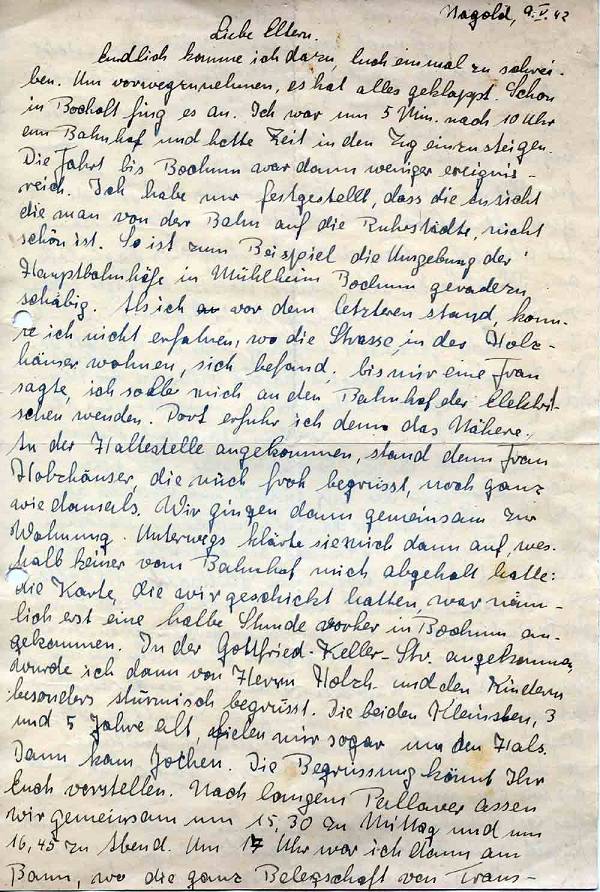 Nagold, 9.V.42
Liebe Eltern.
Endlich komme ich dazu, Euch einmal zu schrei-
ben. Um vorwegzunehmen, es hat alles geklappt. Schon
in Bocholt fing es an. Ich war um 5 Min. nach 10 Uhr
am Bahnhof und hatte Zeit in den Zug einzusteigen.
Die Fahrt bis Bochum war dann weniger ereignis-
reich. Ich habe nur festgestellt, dass die Aussicht
die man von der Bahn auf die Ruhrstädte, nicht
schön ist. So ist zum Beispiel die Umgebung der
Hauptbahnhöfe in Mühlheim Bochum geradezu
schäbig. Als ich vor dem letzteren stand, konn-
te ich nicht erfahren, wo die Strasse, in der Holz-
häuser wohnen, sich befand, bis mir eine Frau
sagte, ich solle mich an den Bahnhof der Elektri-
schen wenden. Dort erfuhr ich denn das Nähere.
An der Haltestelle angekommen, stand denn Frau
Holzhäuser, die mich froh begrüsst, noch ganz
wie damals. Wir gingen dann gemeinsam zur
Wohnung. Unterwegs klärte sie mich dann auf, wes-
halb keiner vom Bahnhof mich abgeholt hatte:
die Karte, die wir geschickt hatten, war näm-
lich erst eine halbe Stunde vorher in Bochum an-
gekommen. In der Gottfried-Keller-Str. angekommen,
wurde ich dann von Herrn Holzh. und den Kindern
besonders stürmisch begrüsst. Die beiden Kleinsten, 3
und 5 Jahre alt, fielen mir sogar um den Hals.
Dann kam Jochen. Die Begrüssung könnt Ihr
Euch vorstellen. Nach langem Pallaver assen
wir gemeinsam um 15,30 zu Mittag und um
16,45 zu Abend. Um 17 Uhr war ich dann am
Bann, wo die ganz Belegschaft von Trans-